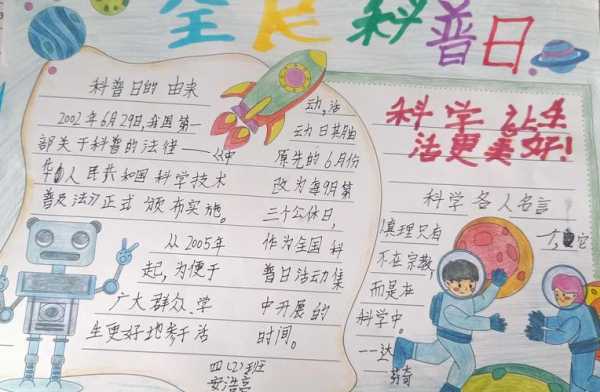 全民科普日
科普日的由来
2002年6月29日,我国第一
部关于科普的法律——《中
华人民共和国科学技术
普及法》正式颁布实施。
从2005年
起,为便于
广大群众、学
生更好地参于活
动,活
动日其月由
原先的6月份
改为每9月第
三个公休日,
作为全国科
普日活动集
中开展的
时间。
四(2)班
科学让生
活更美好!
科学名人名言
真理只有
一个,它
不在宗教,
而是在
科学中。
——达
芬奇